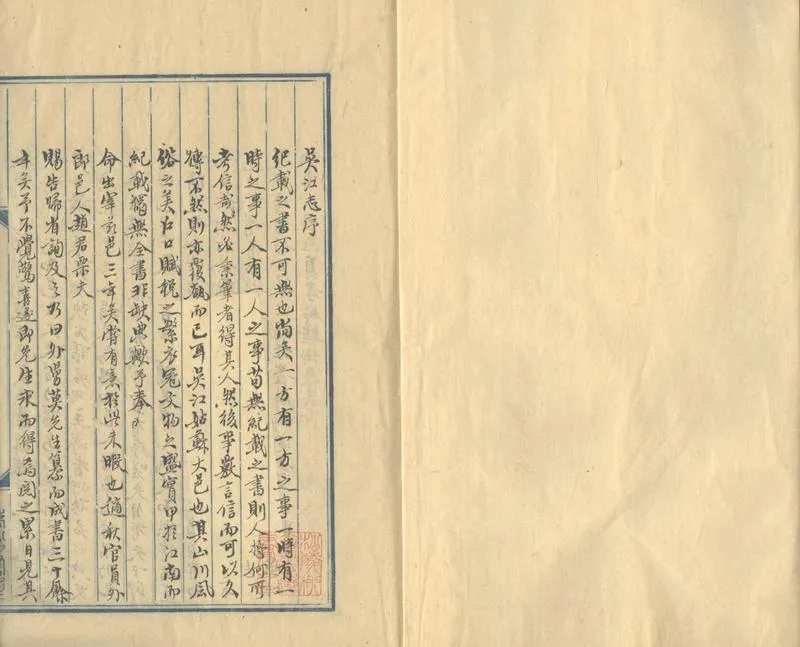 吳江志序
紀載之書不可無也尚矣一方有一方之事一時有一
時之事一人有一人之事苟無紀載之書則人將何所
考信哉然必秉筆者得其人然後事覈言信而可以久
傳不然則亦覆瓿而已耳吳江姑蘇大邑也其山川風
俗之美戶口賦稅之繁衣冠文物之盛實甲於江南而
紀載獨無全書非缺典歟予奉
命出宰茲邑三年矣嘗有意於此未暇也適秋官員外
郎邑人趙君栗夫
賜告歸省詢及之乃曰外舅莫先生纂而成書三十餘
年矣予不覺驚喜遂即先生求而得焉閱之累日見其